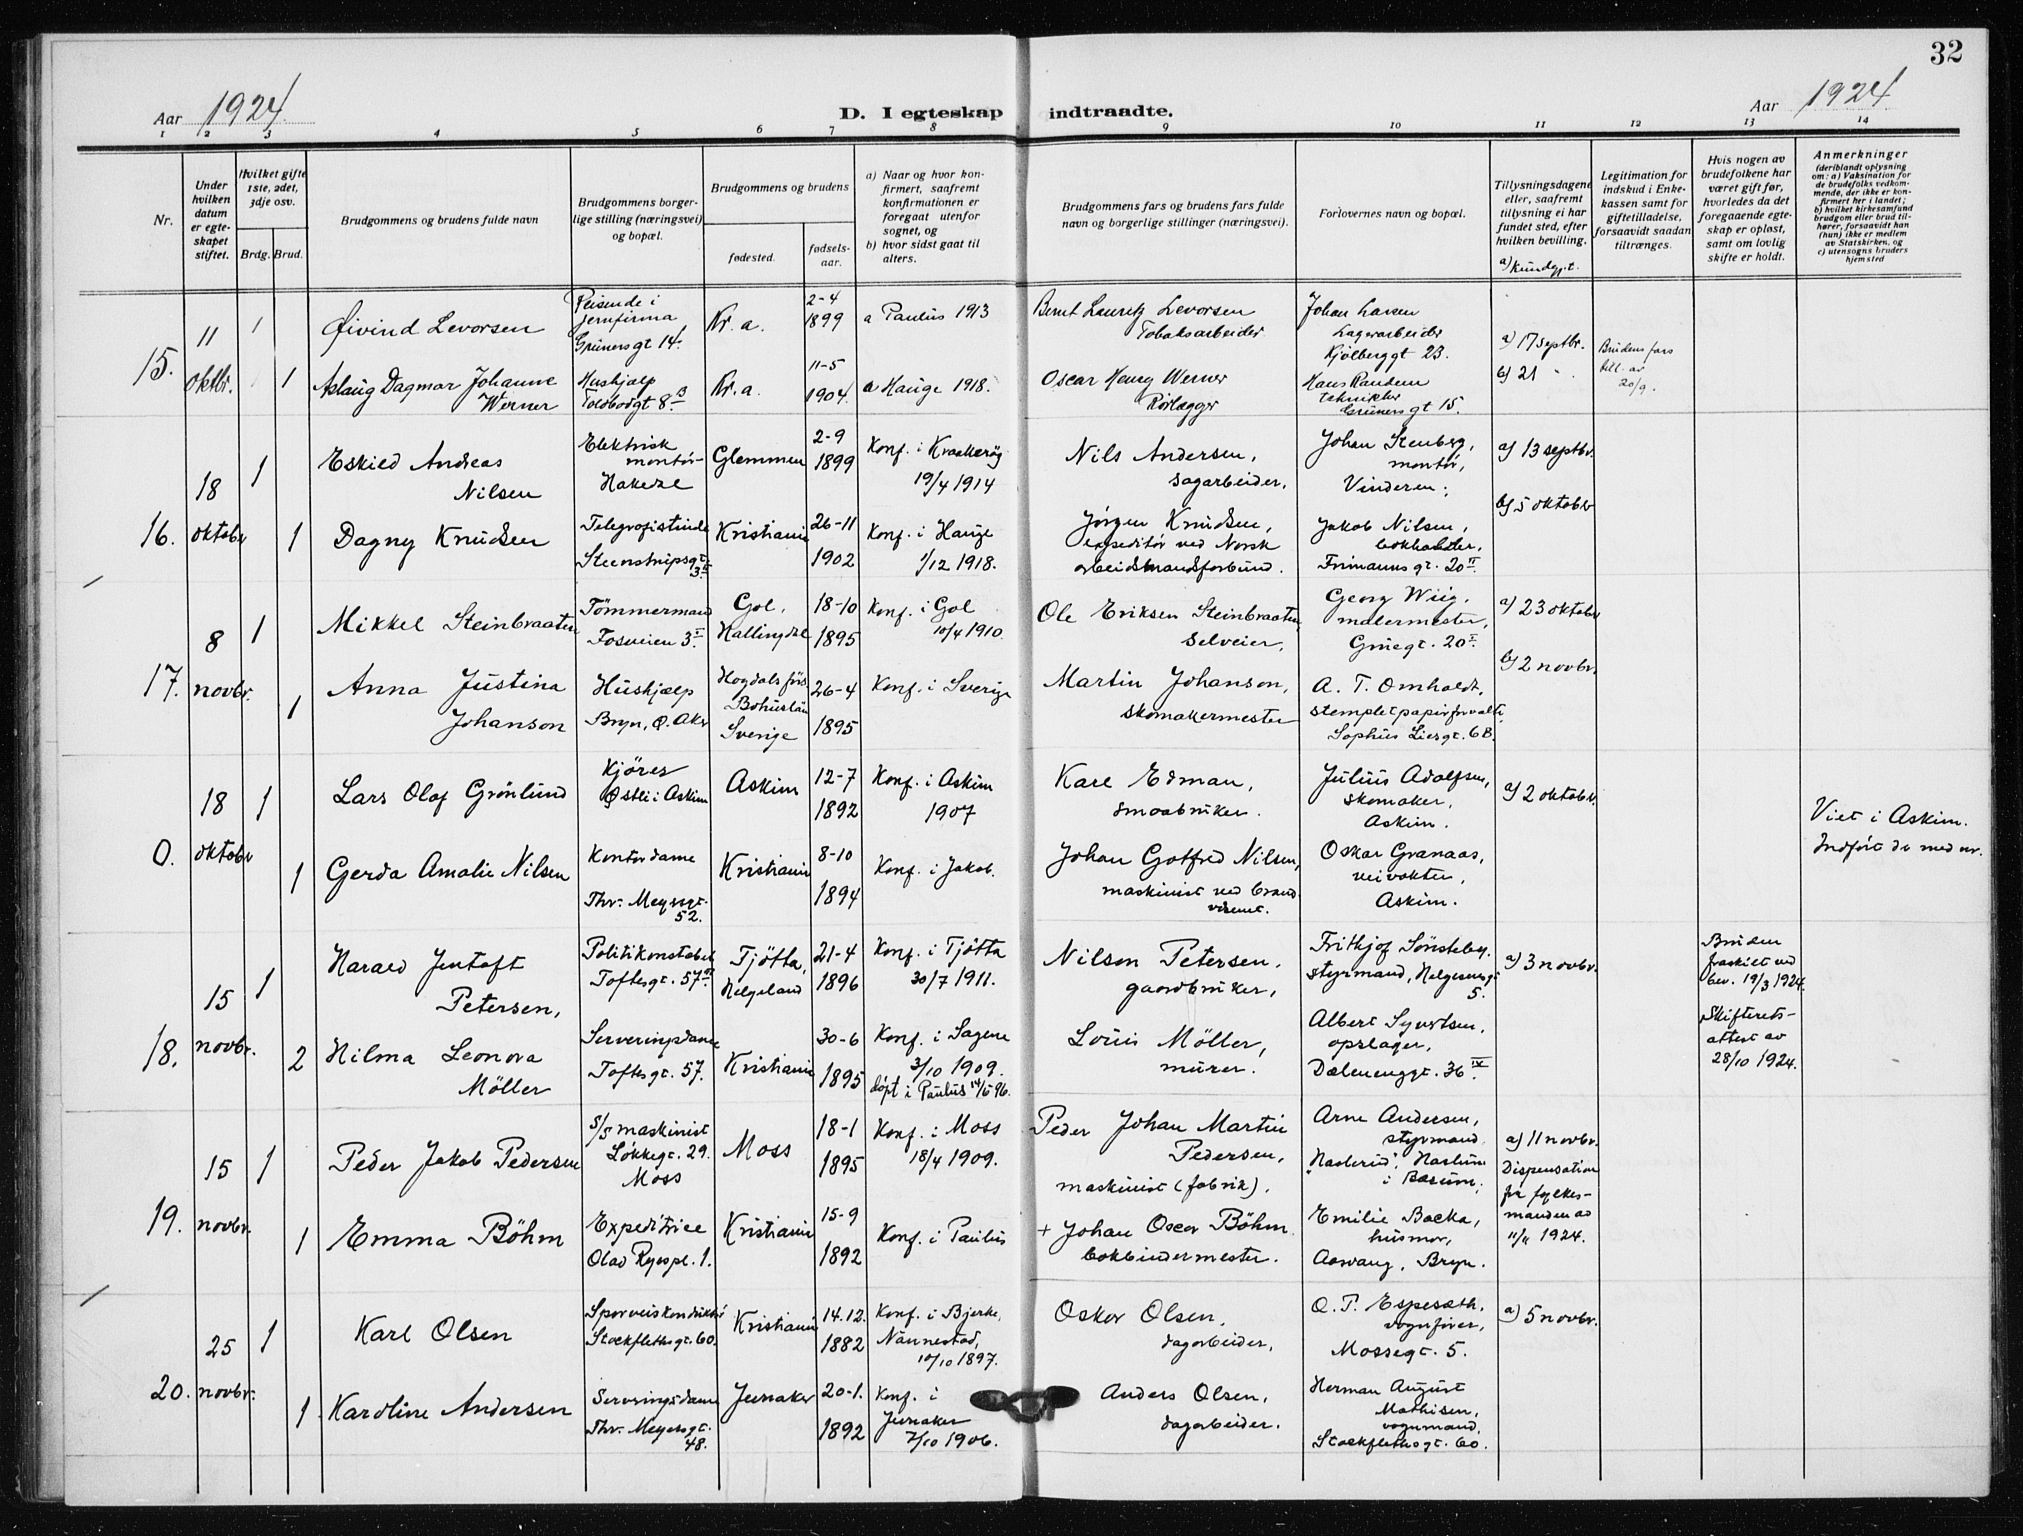 32
Aar 1924.
D. I egteskap indtraadte.
Aar 1924
1 2 3 4 5 6 7 8 9 10 11 12 13 14
Nr.
Under hvilken datum er egteskapet stiftet.
Hvilket gifte 1ste, 2det, 3dje osv.
Brdg. Brud.
Brudgommens og brudens fulde navn
Brudgommens borgerlige stilling (næringsvei) og bopæl.
Brudgommens og brudens
fødested.
fødselsaar.
a) Naar og hvor konfirmert, saafremt konfirmationen er foregaat utenfor sognet, og
b) hvor sidst gaat til alters.
Brudgommens fars og brudens fars fulde navn og borgerlige stillinger (næringsvei).
Forlovernes navn og bopæl.
Tillysningsdagene eller, saafremt tillysning ei har fundet sted, efter hvilken bevilling.
a) kundgjt.
Legitimation for indskud i Enkekassen samt for giftetilladelse, forsaavidt saadan tiltrænges.
Hvis nogen av brudefolkene har været gift før, hvorledes da det foregaaende egteskap er opløst, samt om lovlig skifte er holdt.
Anmerkninger
(deriblandt oplysning om: a) Vaksination for de brudefolks vedkommende, der ikke er konfirmert her i landet; b) hvilket kirkesamfund brudgom eller brud tilhører, forsaavidt han (hun) ikke er medlem av Statskirken, og c) utensogns bruders hjemsted
15.
11 oktbr.
1
Øivind Levorsen
Reisende i jernfirma
Grünersgt 14.
Kr. a.
2-4
1899
a Paulus 1913
Bernt Lauritz Levorsen
Tobaksarbeider
Johan Larsen
Lagerarbeider
Kjølberggt 23.
a) 17 septbr.
1
Aslaug Dagmar Johanne
Werner
Hushjælp
Toldbodgt 8 B
Kr. a.
11-5
1904.
a Hauge 1918.
Oscar Henry Werner
Rørlægger
Hans Randem
tekniker
Grünersgt 15.
b) 21 -
Brudens fars
till. av
20/9.
16.
18 oktober
1
Eskild Andreas
Nilsen
Elektrisk
montør
Hakedal
Glemmen
2-9
1899
Konf. i Kraakerøy
19/4 1914
Nils Andersen,
sagarbeider,
Johan Stenberg,
montør,
Vinderen;
a) 13 septbr.
1
Dagny Knudsen
Telegrafistinde
Steenstrupsgt.
3 II
Kristiania
26-11
1902
Konf. i Hauge
1/12 1918.
Jørgen Knudsen,
expeditør ved Norsk
arbeidsmandsforbund.
Jakob Nilsen,
bokholder,
Frimannsgt. 20 II.
b) 5 oktober
17.
8 novbr.
1
Mikkel Steinbraaten
Tömmermand
Fossveien 3 I
Gol,
Hallingdal
18-10
1895
Konf. i Gol
10/4 1910.
Ole Eriksen Steinbraaten,
selveier,
Georg Wiig,
malermester,
Gøtegt. 20 I.
a) 23 oktober
1
Anna Justina
Johanson
Hushjælp
Bryn, Ø. Aker
Hogdals förs.
Bohuslän
Sverige
26-4
1895
Konf. i Sverige
Martin Johanson,
skomakermester
A. T. Omholdt,
stempletpapirforvalt.
Sophus Liesgt. 6B.
b) 2 novbr.
0.
18 oktober
1
Lars Olaf Grönlund
Kjörer
Østli i Askim
Askim
12-7
1892
Konf. i Askim
1907
Karl Edman,
smaabruker.
Julius Adolfsen,
skomaker,
Askim.
a) 2 oktober.
Viet i Askim.
Indfört de med nr.
1
Gerda Amalie Nilsen
Kontordame
Thv. Meyersgt.
52.
Kristiania
8-10
1894
Konf. i Jakob.
Johan Gotfred Nilsen,
maskinist ved brand
væsenet.
Oskar Granaas,
veivokter,
Askim.
18.
15 novbr.
1
Harald Jentoft
Petersen,
Politikonstabel
Toftesgt. 57 II
Tjøtta,
Helgeland
21-4
1896
Konf. i Tjøtta
30/7 1911.
Nilson Petersen,
gaardbruker,
Frithjof Sönsteby.
styrmand, Helgesensgt
5.
a) 3 novbr.
Bruden
fraskilt ved
bev. 19/3 1924.
Skifterets-
attest av
28/10 1924.
2
Hilma Leonora
Möller
Serveringsdame
Toftesgt. 57.
Kristiania
30-6
1895
Konf. i Sagene
3/10 1909.
döpt i Paulus 14/5 96.
Louis Möller,
murer.
Albert Syvertsen,
opslager,
Dælenenggt. 36 IV.
19.
15 novbr.
1
Peder Jakob Pedersen
S/S maskinist
Løkkegt. 29.
Moss
Moss
18-1
1895
Konf. i Moss
18/4 1909.
Peder Johan Martin
Pedersen,
maskinist (fabrik),
Arne Andersen,
styrmand
"Haslerud", Haslum
i Bærum,
a) 11 novbr.
Dispensation
fra fylkes-
manden av
11/11 1924.
1
Emma Böhm
Expeditrice
Olav Ryespl. 1.
Kristiania
15-9
1892
Konf. i Paulus
+ Johan Oscar Böhm
bokbindermester.
Emilie Bakka,
husmor,
Aasvang, Bryn.
20.
25 novbr.
1
Karl Olsen
Sporveiskonduktör
Stockflethsgt. 60.
Kristiania
14.12.
1882
Konf. i Bjerke,
Nannestad,
10/10 1897.
Oskar Olsen,
dagarbeider,
O. P. Espeseth,
vognfører,
Mossegt. 5.
a) 5 novbr.
1
Karoline Andersen
Serveringsdame
Thv. Meyersgt.
48.
Jevnaker
20-1.
1892
Konf. i
Jevnaker
7/10 1906.
Anders Olsen,
dagarbeider.
Herman August
Mathisen,
vognmand,
Stockflethsgt. 60.